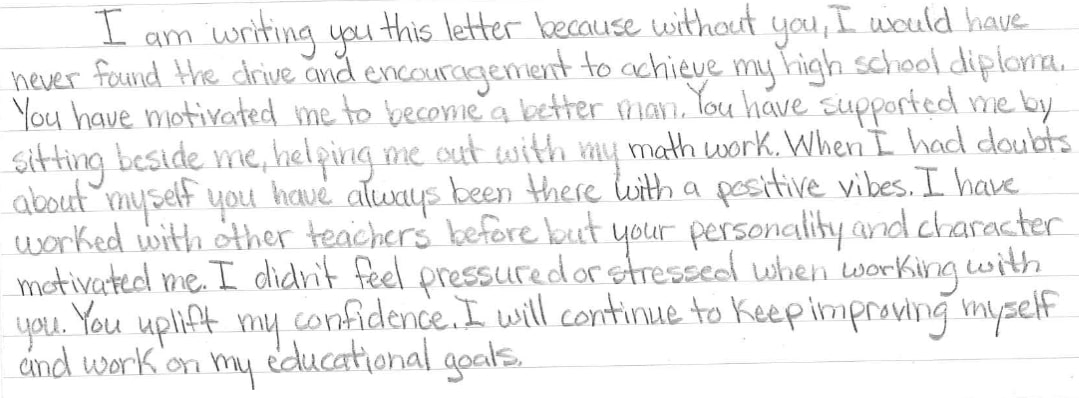 I am writing you this letter because without you, I would have
never found the drive and encouragement to achieve my high school diploma.
You have motivated me to become a better man. You have supported me by
sitting beside me, helping me out with my math work. When I had doubts
about myself you have always been there with a positive vibes. I have
worked with other teachers before but your personality and character
motivated me. I didn't feel pressured or stressed when working with
you. You uplift my confidence. I will continue to keep improving myself
and work on my educational goals.